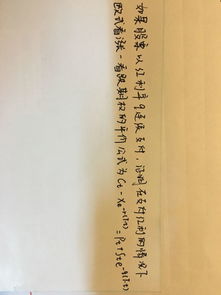 如果股票以红利率q连续支付，证明在支付红利的情况下
欧式看涨-看跌期权的平价公式为 Ct - Xe^-r(T-t) = Pt + St e^-q(T-t)